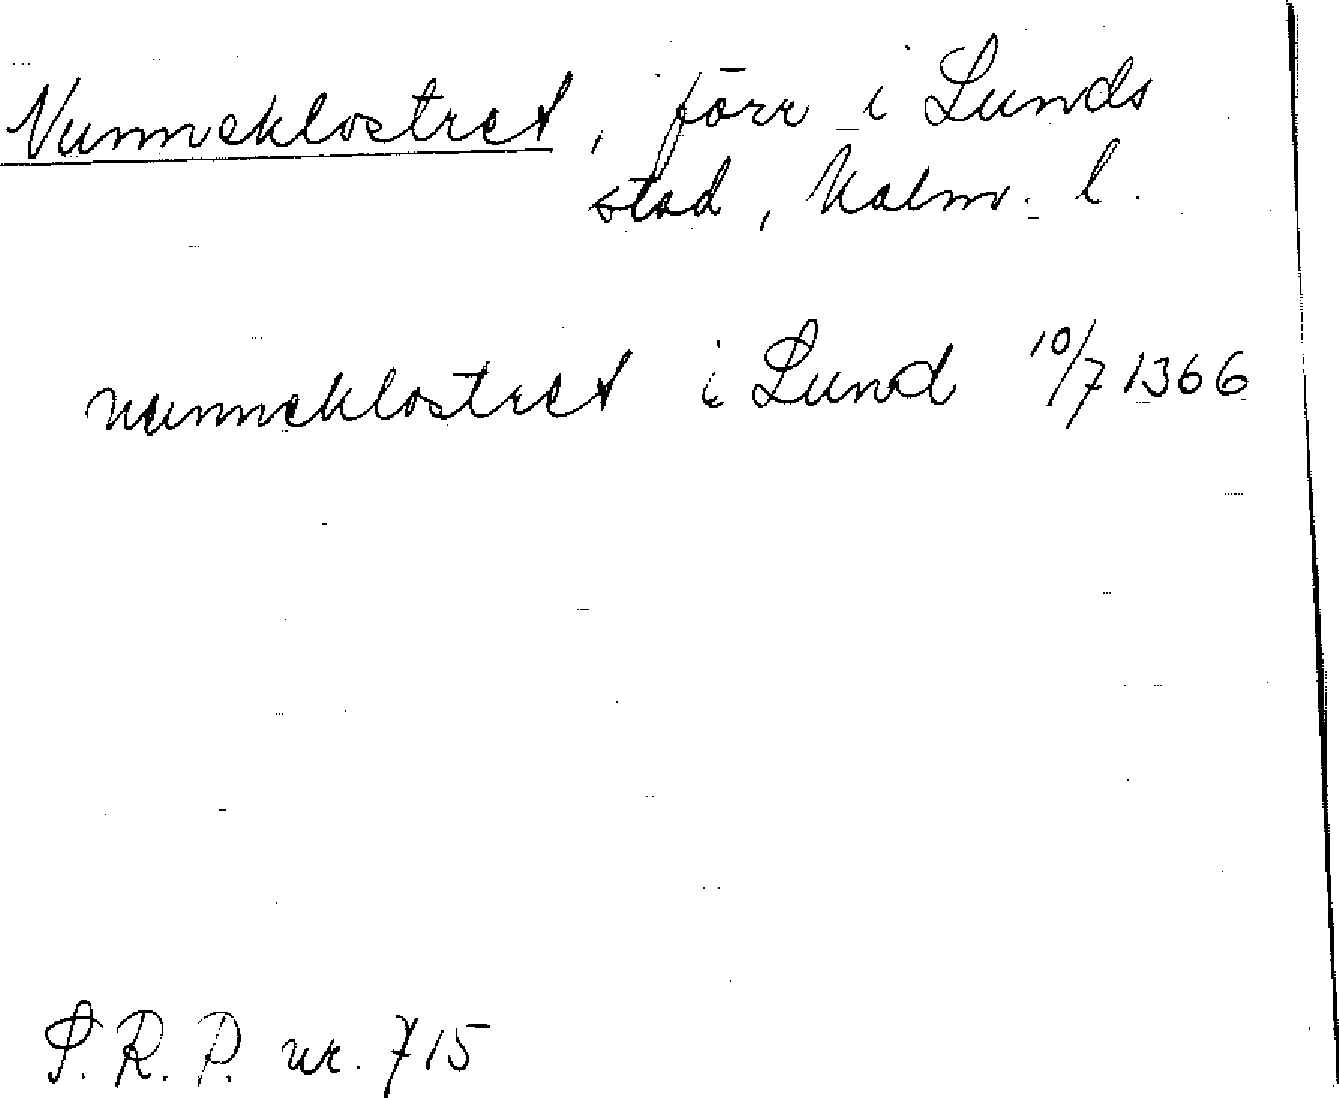 Nunneklostret, förr i Lunds
stad, Malm. l.
nunneklostret i Lund 10/7 1366
S.R.P. nr. 715